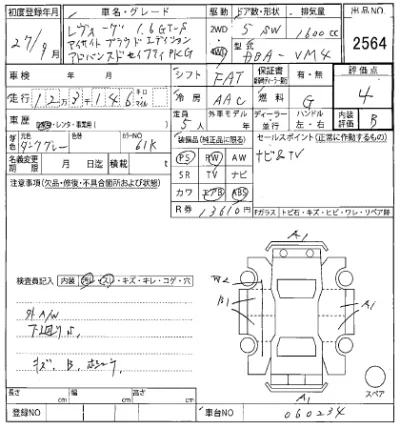 初度登録年月 車名・グレード 駆動 ドア数・形状 排気量 出品NO
27/9月 レヴォーグ 1.6GT-S 2WD 5 SW 1600cc 2564
アイサイト プラウド エディション 4WD 型式 DBA-VM4
アドバンスドセイフティPKG
車検 年 月 シフト FAT 保証書 有・無 評価点
走行 12万3千140 キロ マイル 冷房 AAC 燃料 G 4
車歴 自・レンタ・事業用( ) 定員 5人 外車モデル 年 ディーラー 並行 ハンドル 左・右 内装評価 B
色 元色 ダークグレー 色替 カラーNO 61K 装備品(純正品に限る) セールスポイント(正常に作動するもの)
名義変更期限 月 日迄 積載 t PS PW AW ナビ&TV
注意事項(欠品・修復・不具合箇所および状態) SR TV ナビ
カワ エアB ABS
R券 13610円 Fガラス トビ石・キズ・ヒビ・ワレ・リペア跡
A1
検査員記入 内装 汚レ・スレ・キズ・キレ・コゲ・穴
W2
B1 A1
外A/W
下廻りサビ
キズ、B、
A1 スペア
長さ cm 幅 cm 高さ cm
登録NO 車台NO 060234